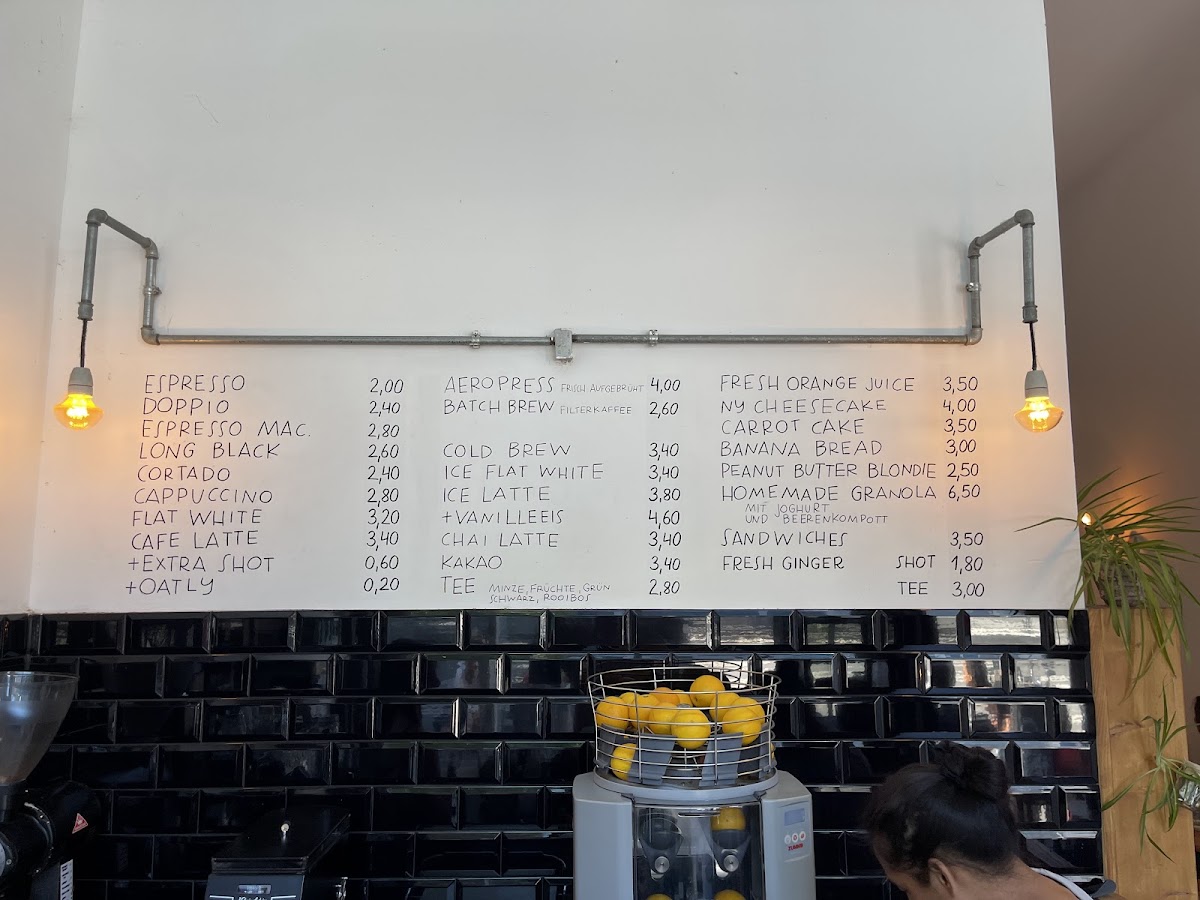 ESPRESSO 2,00
DOPPIO 2,40
ESPRESSO MAC. 2,80
LONG BLACK 2,60
CORTADO 2,40
CAPPUCCINO 2,80
FLAT WHITE 3,20
CAFE LATTE 3,40
+EXTRA SHOT 0,60
+OATLY 0,20
AEROPRESS FRISCH AUFGEBRÜHT 4,00
BATCH BREW FILTERKAFFEE 2,60
COLD BREW 3,40
ICE FLAT WHITE 3,40
ICE LATTE 3,80
+VANILLEEIS 4,60
CHAI LATTE 3,40
KAKAO 3,40
TEE MINZE, FRÜCHTE, GRÜN 2,80
SCHWARZ, ROOIBOS
FRESH ORANGE JUICE 3,50
NY CHEESECAKE 4,00
CARROT CAKE 3,50
BANANA BREAD 3,00
PEANUT BUTTER BLONDIE 2,50
HOMEMADE GRANOLA 6,50
MIT JOGHURT
UND BEERENKOMPOTT
SANDWICHES 3,50
FRESH GINGER SHOT 1,80
TEE 3,00